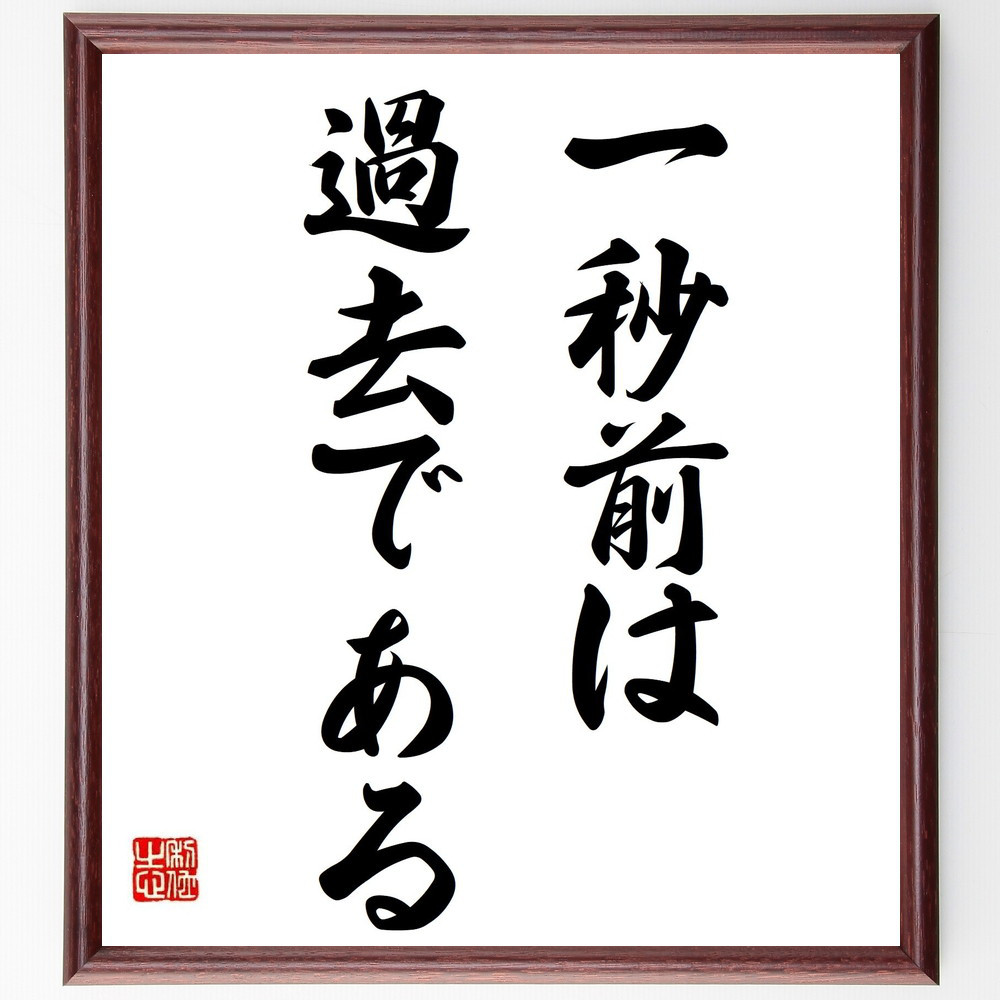 一秒前は
過去である